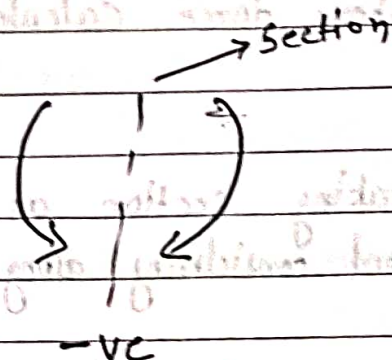 section
-ve